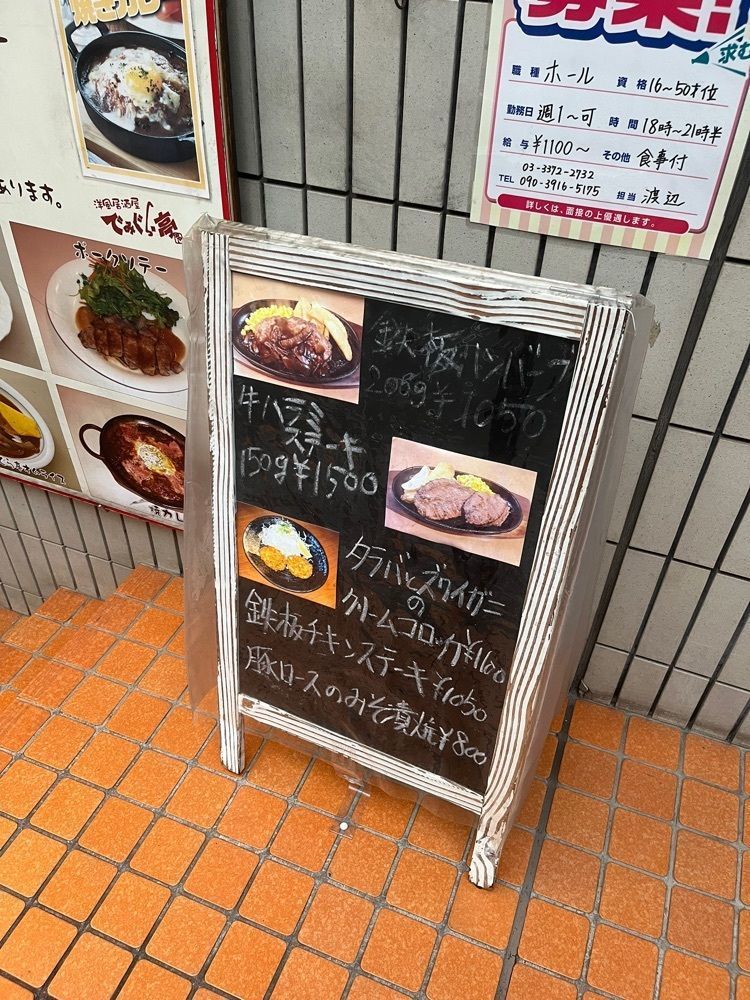 焼きカレ
あります。
洋風居酒屋
でみぐら亭
ポークソテー
焼カレ
募集!
求む
職種 ホール 資格 16~50才位
勤務日 週1~可 時間 18時~21時半
給与 ¥1100~ その他 食事付
03-3372-2732
TEL 090-3916-5175 担当 渡辺
詳しくは、面接の上優遇します。
鉄板ハンバーグ
200g¥1050
牛ハラミ
ステーキ
150g¥1500
タラバとズワイガニ
の
クリームコロッケ¥1160
鉄板チキンステーキ¥1050
豚ロースのみそ漬焼¥800